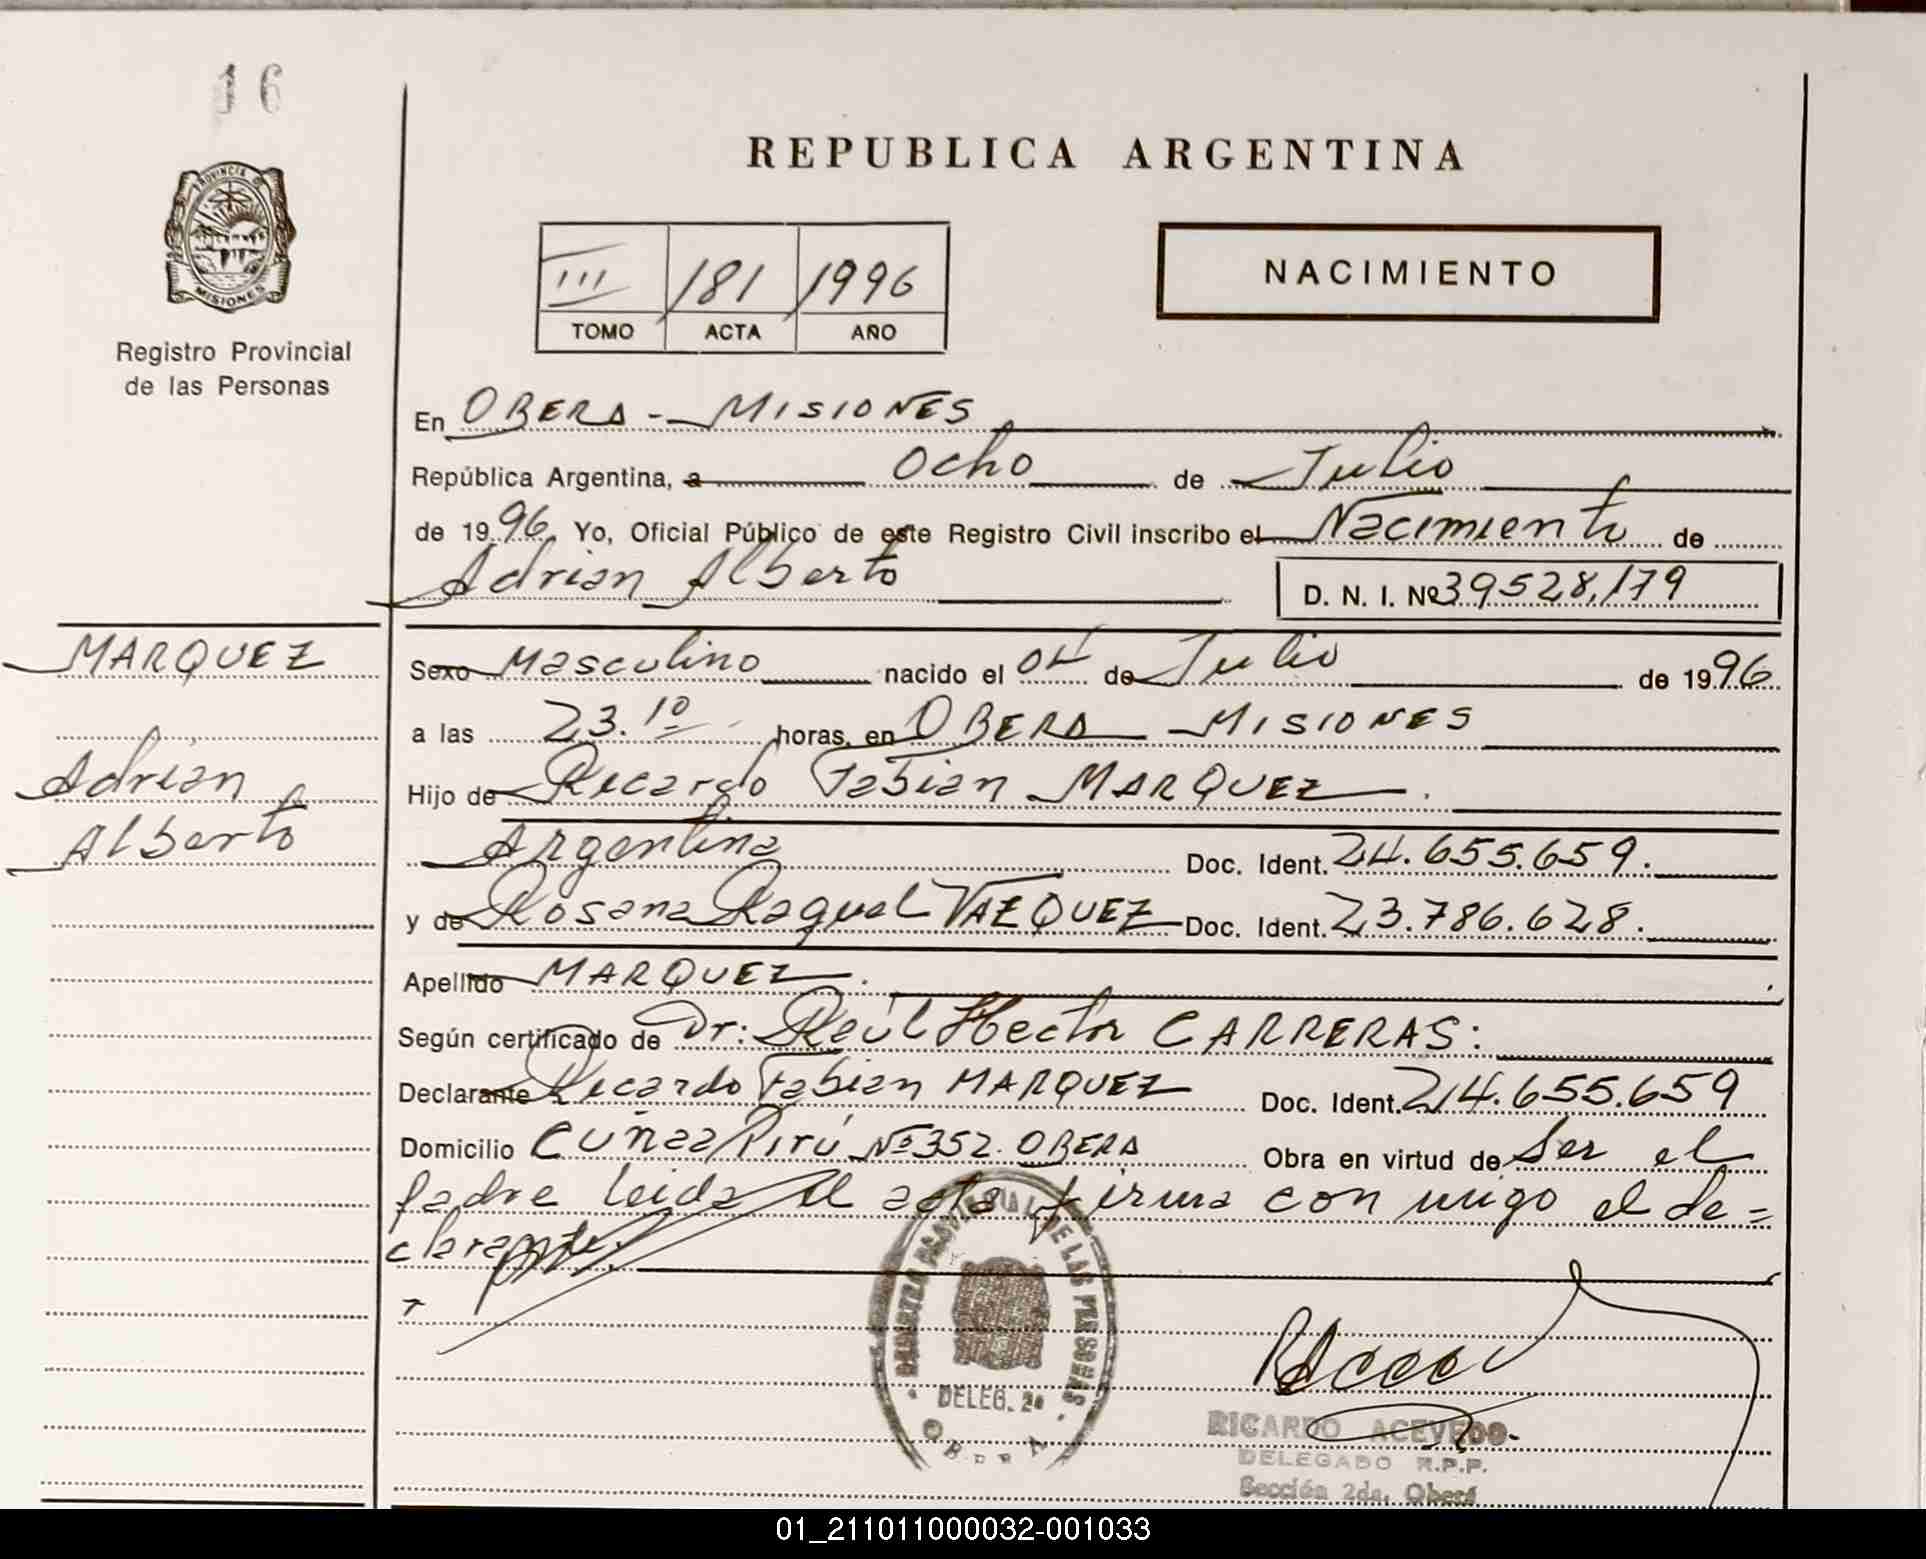 16
REPUBLICA ARGENTINA
PROVINCIA DE
MISIONES
III 181 1996
TOMO ACTA AÑO
NACIMIENTO
Registro Provincial
de las Personas
En OBERA - MISIONES
República Argentina, a Ocho de Julio
de 1996. Yo, Oficial Público de este Registro Civil inscribo el Nacimiento de
Adrian Alberto D. N. I. Nº 39528,179
MARQUEZ
Adrian
Alberto
Sexo Masculino nacido el 04 de Julio de 1996
a las 23.10 horas, en OBERA - MISIONES
Hijo de Ricardo Fabian MARQUEZ.
Argentina Doc. Ident. 24.655.659.
y de Rosana Raquel VAZQUEZ Doc. Ident. 23.786.628.
Apellido MARQUEZ.
Según certificado de Dr: Raúl Hector CARRERAS:
Declarante Ricardo Fabian MARQUEZ Doc. Ident. 24.655.659
Domicilio Cuñaa Pirú Nº 352. OBERA Obra en virtud de Ser el
padre leida el acta firma con migo el de=
clarante.
REGISTRO PROVINCIAL DE LAS PERSONAS
DELEG. 2ª
OBERA
RICARDO ACEVEDO
DELEGADO R.P.P.
Sección 2da. Oberá
01_211011000032-001033